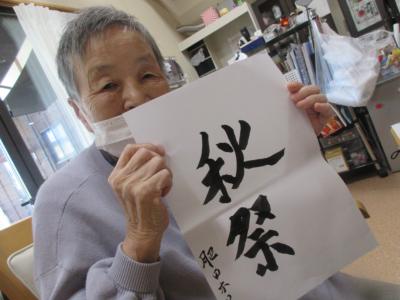 秋祭
肥田